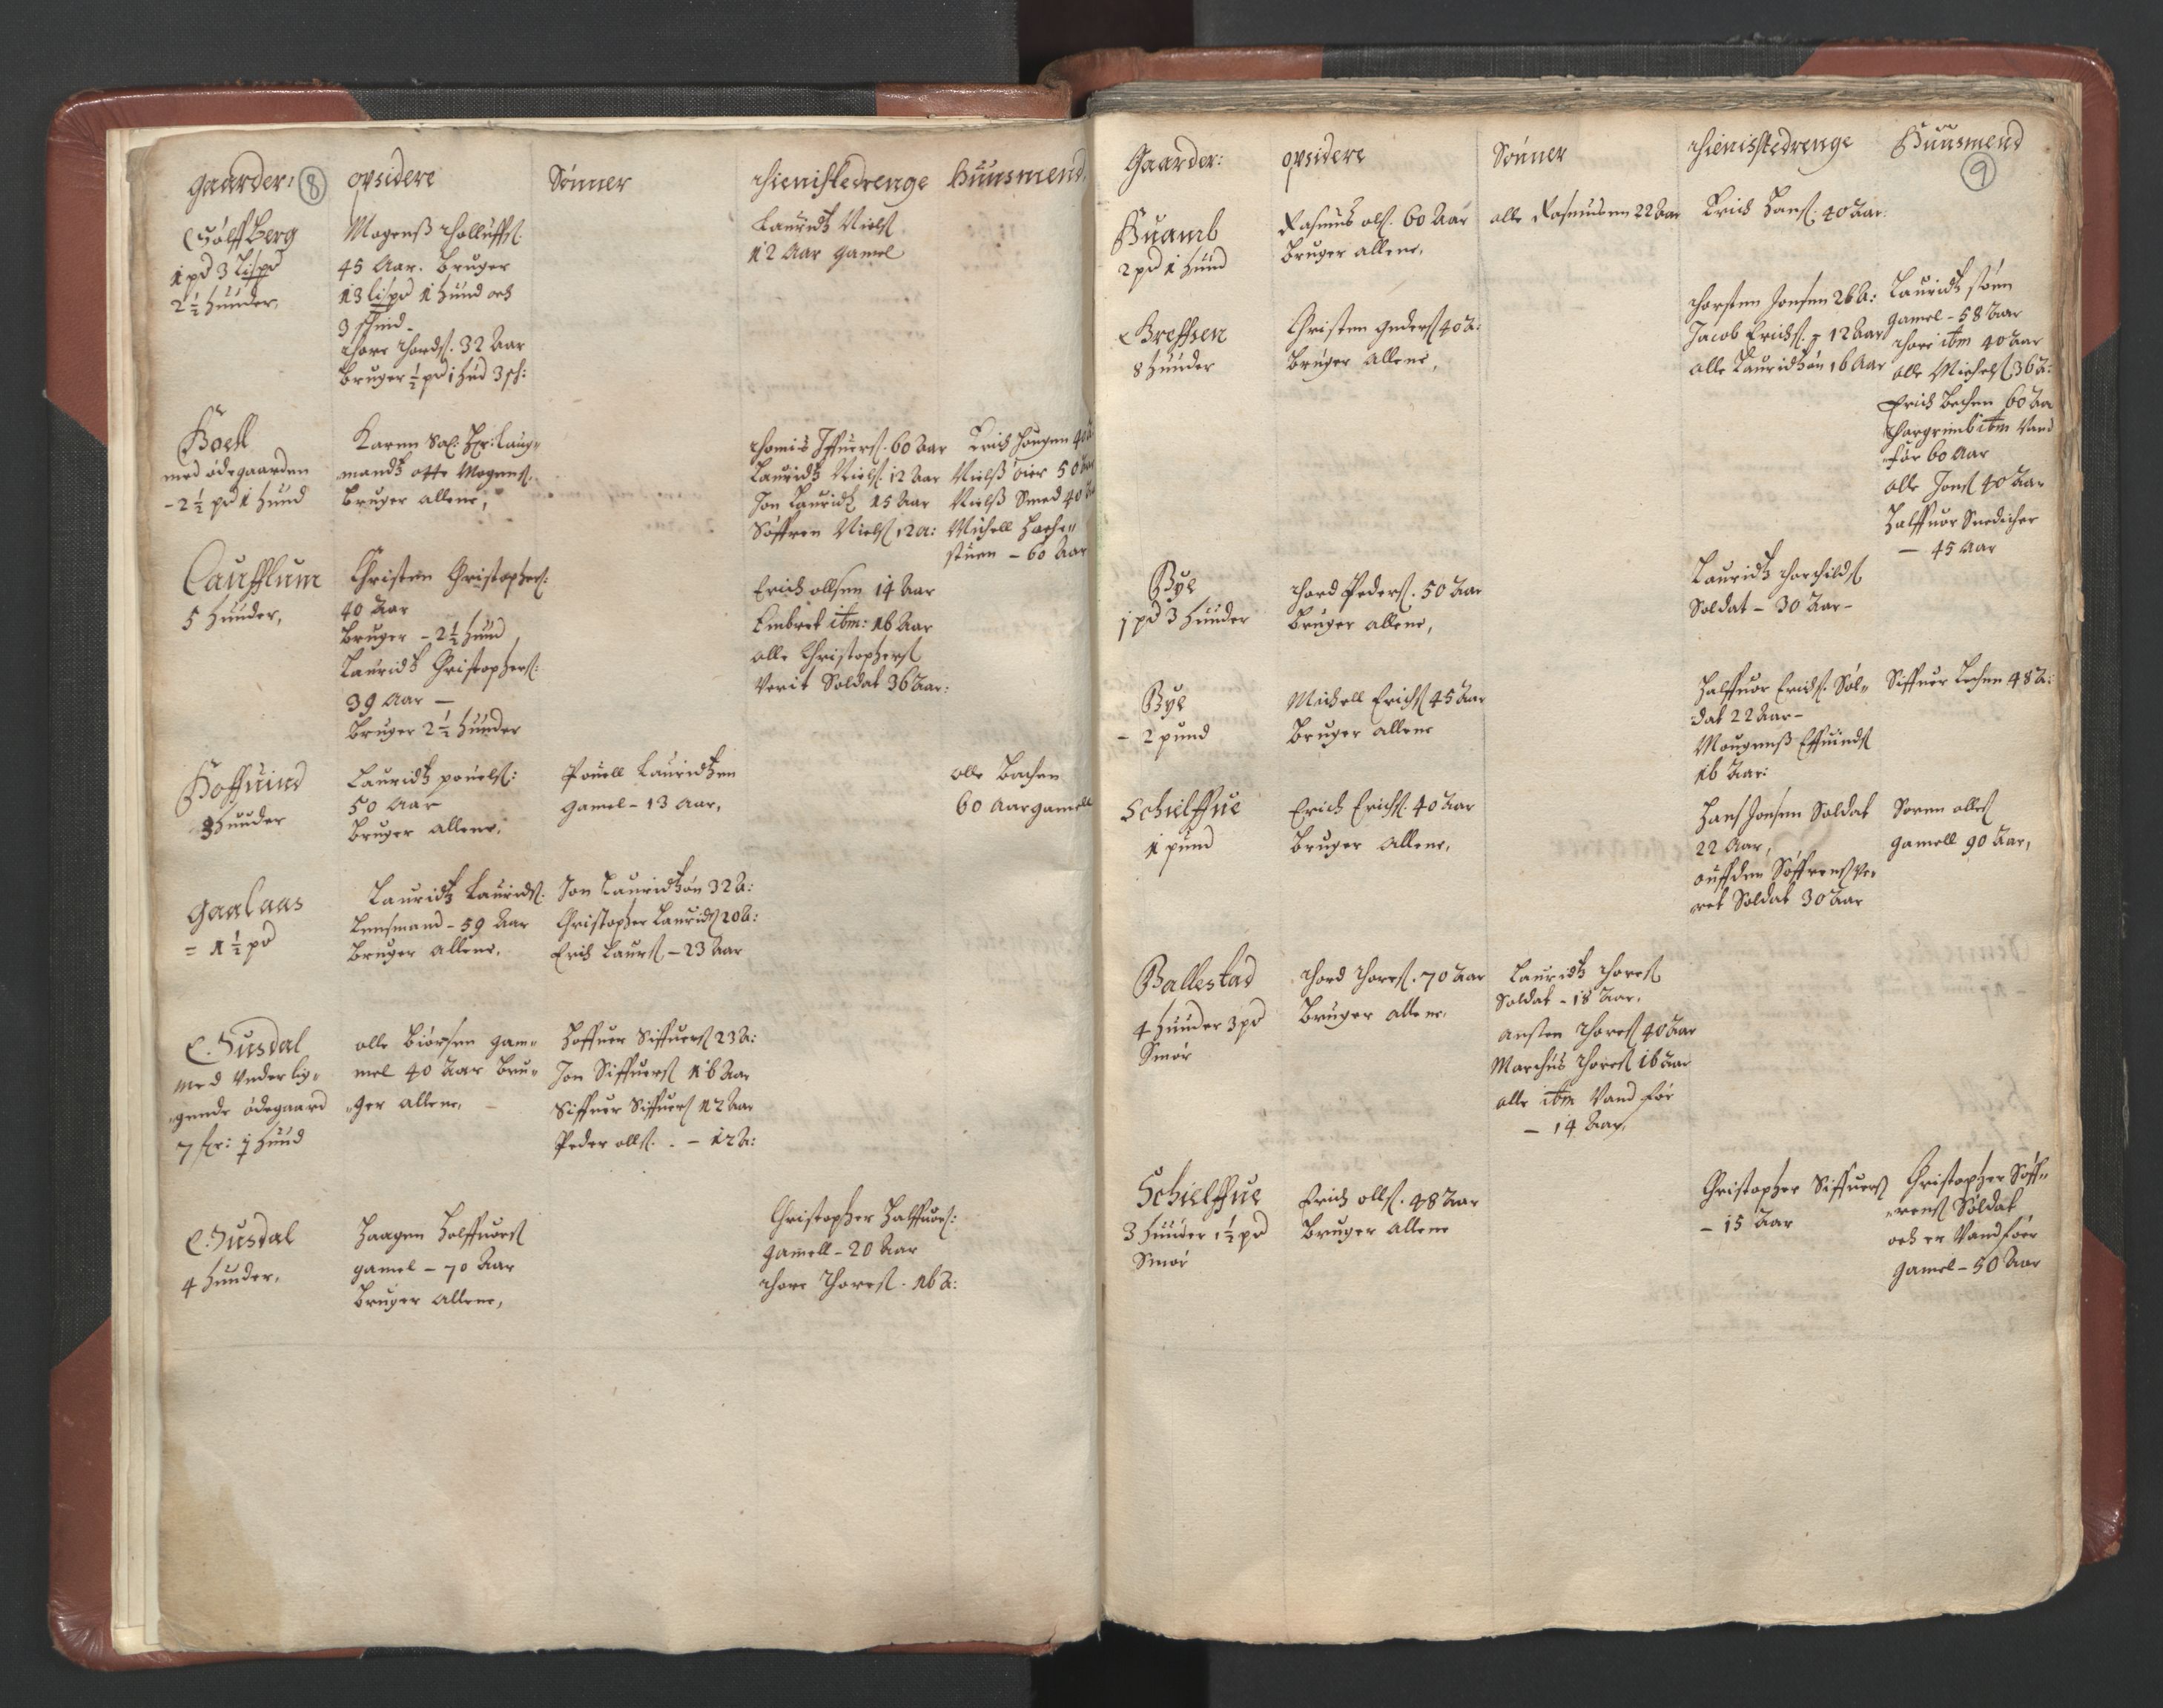 Gaarder: 8 opsidere Sønner thienistedrenge Huusmend
Sølffberg
1 pd 3 lispd
2½ Hunder,
Mogenß Thollufs:
45 Aar. Bruger
13 lispd 1 Hund och
3 skind
Thore Thords: 32 Aar
Bruger ½ pd 1 Hud 3 sk:
Lauridtz Niels
12 Aar gamel
Hoell
med ødegaarden
- 2½ pd 1 Hund
Karen Sal: Hr: Laug-
mandtz Otte Mogens.
Bruger allene,
Thomis Iffuers. 60 Aar
Lauridtz Niels. 12 Aar
Jon Lauridtz 15 Aar
Søffren Niels 12 A:
Erich Hougen 40 A
Nielß Øier 50 Aar
Nielß Smed 40 A
Michell Hache-
stuen - 60 Aar
Caufflum
5 Hunder,
Christen Christophers:
40 Aar
Bruger - 2½ Hund
Lauridtz Christophers:
39 Aar -
Bruger 2½ Hunder
Erich Ollsen 14 Aar
Embret itm: 16 Aar
Olle Christophers
Verit Soldat 36 Aar:
Hoffuind
3 Hunder
Lauridtz Pouels:
50 Aar
Bruger allene,
Pouell Lauridtzen
gamel - 13 Aar,
Olle Bachen
60 Aar gamell
Gaalaas
= 1½ pd
Lauridtz Laurids:
Lensmand - 59 Aar
Bruger allene,
Jon Lauridtzøn 32 A:
Christopher Laurids 20 A:
Erich Laurs - 23 Aar
Susdal
med Vnderlig-
gende ødegaard
7 fr: 1 Hund
Olle Biørsen gam-
mel 40 Aar Bru-
ger allene,
Hoffuer Siffuers 23 A:
Jon Siffuers 16 Aar
Siffuer Siffuers 12 Aar
Peder Olls. - 12 A:
Susdal
4 Hunder,
Haagen Halffuors
gamel - 70 Aar
Bruger allene,
Christopher Halffuors:
gamell - 20 Aar
Thore Thores. 16 A:
Gaarder: opsidere Sønner thienistedrenge Huusmend
9
Huamb
2 pd 1 Hund
Rasmus Ols. 60 Aar
Bruger allene,
Olle Rasmusen 22 Aar
Erich Hans. 40 Aar.
Breffsen
8 Hunder
Christen Gunders 40 A:
Bruger allene,
Thorsten Jonsen 26 A:
Jacob Erichs: 12 Aar
Olle Lauridtzøn 16 Aar
Lauridtz Støen
gamel - 58 Aar
Thore itm 40 Aar
Olle Michels 36 A:
Erich Bechen 60 Aar
Thorgrimb itm Vand
før 60 Aar
Olle Jons 40 Aar
Halffuor Snedicher
- 45 Aar
Bye
1 pd 3 Hunder
Thord Peders. 50 Aar
Bruger allene,
Lauridtz Thorchilds
Soldat - 30 Aar -
Bye
- 2 pund
Michell Erichs 45 Aar
Bruger allene
Halffuor Erichs. Sol-
dat 22 Aar -
Mougenß Effuinds
16 Aar:
Siffuer Lechen 48 A:
Schielffue
1 pund
Erich Erichs. 40 Aar
Bruger allene,
Hans Jonsen Soldat
22 Aar,
Ouffden Søffrens Ve-
ret Soldat 30 Aar
Soren Olles
gamell 90 Aar,
Ballestad
4 Hunder 3 pd
Smør
Thord Thores. 70 Aar
Bruger allene,
Lauridtz Thores
Soldat - 18 Aar,
Ansten Thores 40 Aar
Marchus Thores 16 Aar
Olle itm Vand før
- 14 Aar,
Schielffue
3 Hunder 1½ pd
Smør
Erich Olls. 48 Aar
Bruger allene
Christopher Siffuers
- 15 Aar
Christopher Søff-
rens Soldat
och er Vandføer
gamel - 50 Aar